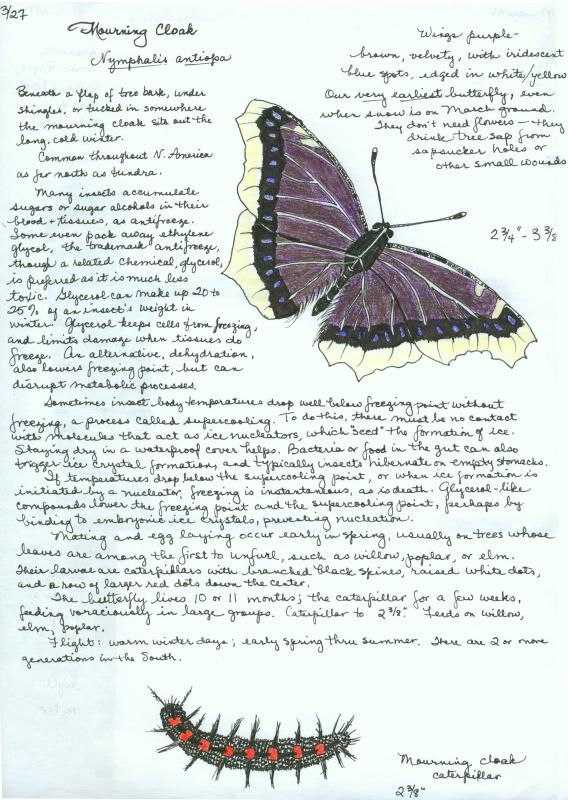 3/27
Mourning Cloak
Nymphalis antiopa
Wings purple-
brown, velvety, with iridescent
blue spots, edged in white/yellow
Our very earliest butterfly, even
when snow is on March ground.
They don't need flowers — they
drink tree sap from
sapsucker holes or
other small wounds
2 3/4" - 3 3/8
Beneath a flap of tree bark, under
shingles, or tucked in somewhere
the mourning cloak sits out the
long, cold winter.
Common throughout N. America
as far north as tundra.
Many insects accumulate
sugars or sugar alcohols in their
blood + tissues, as antifreeze.
Some even pack away ethylene
glycol, the trademark antifreeze,
though a related chemical, glycerol,
is preferred as it is much less
toxic. Glycerol can make up 20 to
25% of an insect's weight in
winter. Glycerol keeps cells from freezing,
and limits damage when tissues do
freeze. An alternative, dehydration,
also lowers freezing point, but can
disrupt metabolic processes.
Sometimes insect body temperatures drop well below freezing point without
freezing, a process called supercooling. To do this, there must be no contact
with molecules that act as ice nucleators, which "seed" the formation of ice.
Staying dry in a waterproof cover helps. Bacteria or food in the gut can also
trigger ice crystal formation, and typically insects hibernate on empty stomachs.
If temperatures drop below the supercooling point, or when ice formation is
initiated by a nucleator, freezing is instantaneous, as is death. Glycerol-like
compounds lower the freezing point and the supercooling point, perhaps by
binding to embryonic ice crystals, preventing nucleation.
Mating and egg laying occur early in spring, usually on trees whose
leaves are among the first to unfurl, such as willow, poplar, or elm.
Their larvae are caterpillars with branched black spines, raised white dots,
and a row of larger red dots down the center.
The butterfly lives 10 or 11 months; the caterpillar for a few weeks,
feeding voraciously in large groups. Caterpillar to 2 3/8" Feeds on willow,
elm, poplar.
Flight: warm winter days; early spring thru summer. There are 2 or more
generations in the South.
Mourning cloak
caterpillar
2 3/8"